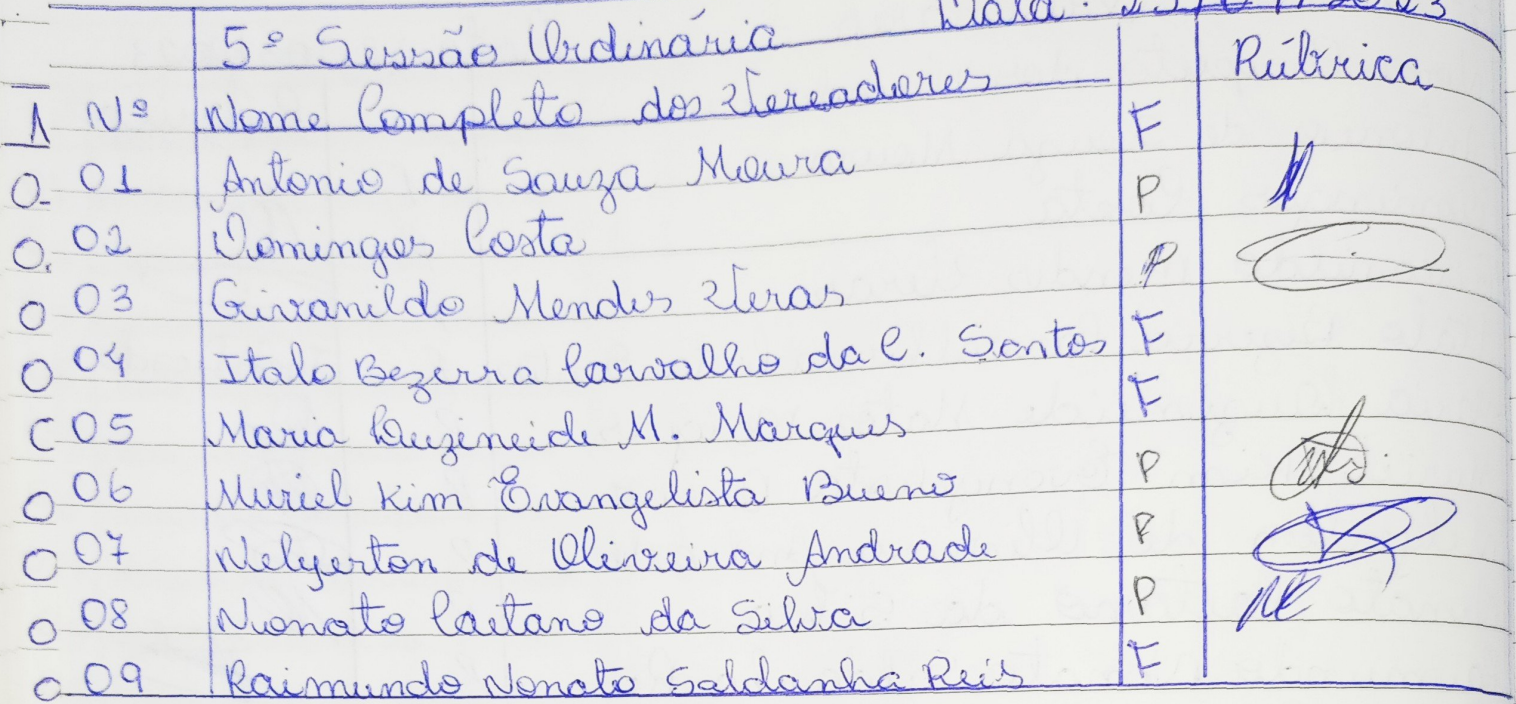 Data:
5º Sessão Ordinária
Nº Nome Completo dos Vereadores Rúbrica
01 Antonio de Souza Moura F
02 Domingos Costa P
03 Givanildo Mendes Veras P
04 Italo Bezerra Carvalho da C. Santos F
05 Maria Luzineide M. Marques F
06 Muriel Kim Evangelista Bueno P
07 Nelyerton de Oliveira Andrade P
08 Nonato Caetano da Silva P
09 Raimundo Nonato Saldanha Reis F